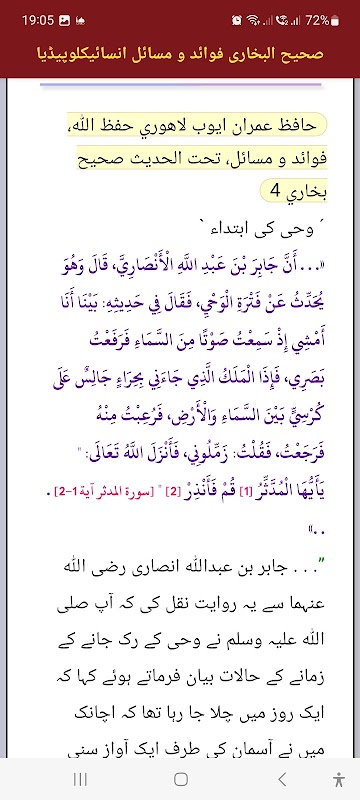 19:05
72%
صحیح البخاری فوائد و مسائل انسائیکلوپیڈیا
حافظ عمران ايوب لاهوري حفظ الله،
فوائد و مسائل، تحت الحديث صحيح
بخاري 4
´ وحی کی ابتداء `
«. . . أَنَّ جَابِرَ بْنَ عَبْدِ اللَّهِ الْأَنْصَارِيَّ، قَالَ وَهُوَ
يُحَدِّثُ عَنْ فَتْرَةِ الْوَحْيِ، فَقَالَ فِي حَدِيثِهِ: بَيْنَا أَنَا
أَمْشِي إِذْ سَمِعْتُ صَوْتًا مِنَ السَّمَاءِ فَرَفَعْتُ
بَصَرِي، فَإِذَا الْمَلَكُ الَّذِي جَاءَنِي بِحِرَاءٍ جَالِسٌ عَلَى
كُرْسِيٍّ بَيْنَ السَّمَاءِ وَالْأَرْضِ، فَرُعِبْتُ مِنْهُ
فَرَجَعْتُ، فَقُلْتُ: زَمِّلُونِي، فَأَنْزَلَ اللَّهُ تَعَالَى: "
يَأَيُّهَا الْمُدَّثِّرُ [1] قُمْ فَأَنْذِرْ [2] " [سورة المدثر آية 1-2] .
. .»
”. . . جابر بن عبداللہ انصاری رضی اللہ
عنہما سے یہ روایت نقل کی کہ آپ صلی
اللہ علیہ وسلم نے وحی کے رک جانے کے
زمانے کے حالات بیان فرماتے ہوئے کہا کہ
ایک روز میں چلا جا رہا تھا کہ اچانک
میں نے آسمان کی طرف ایک آواز سنی